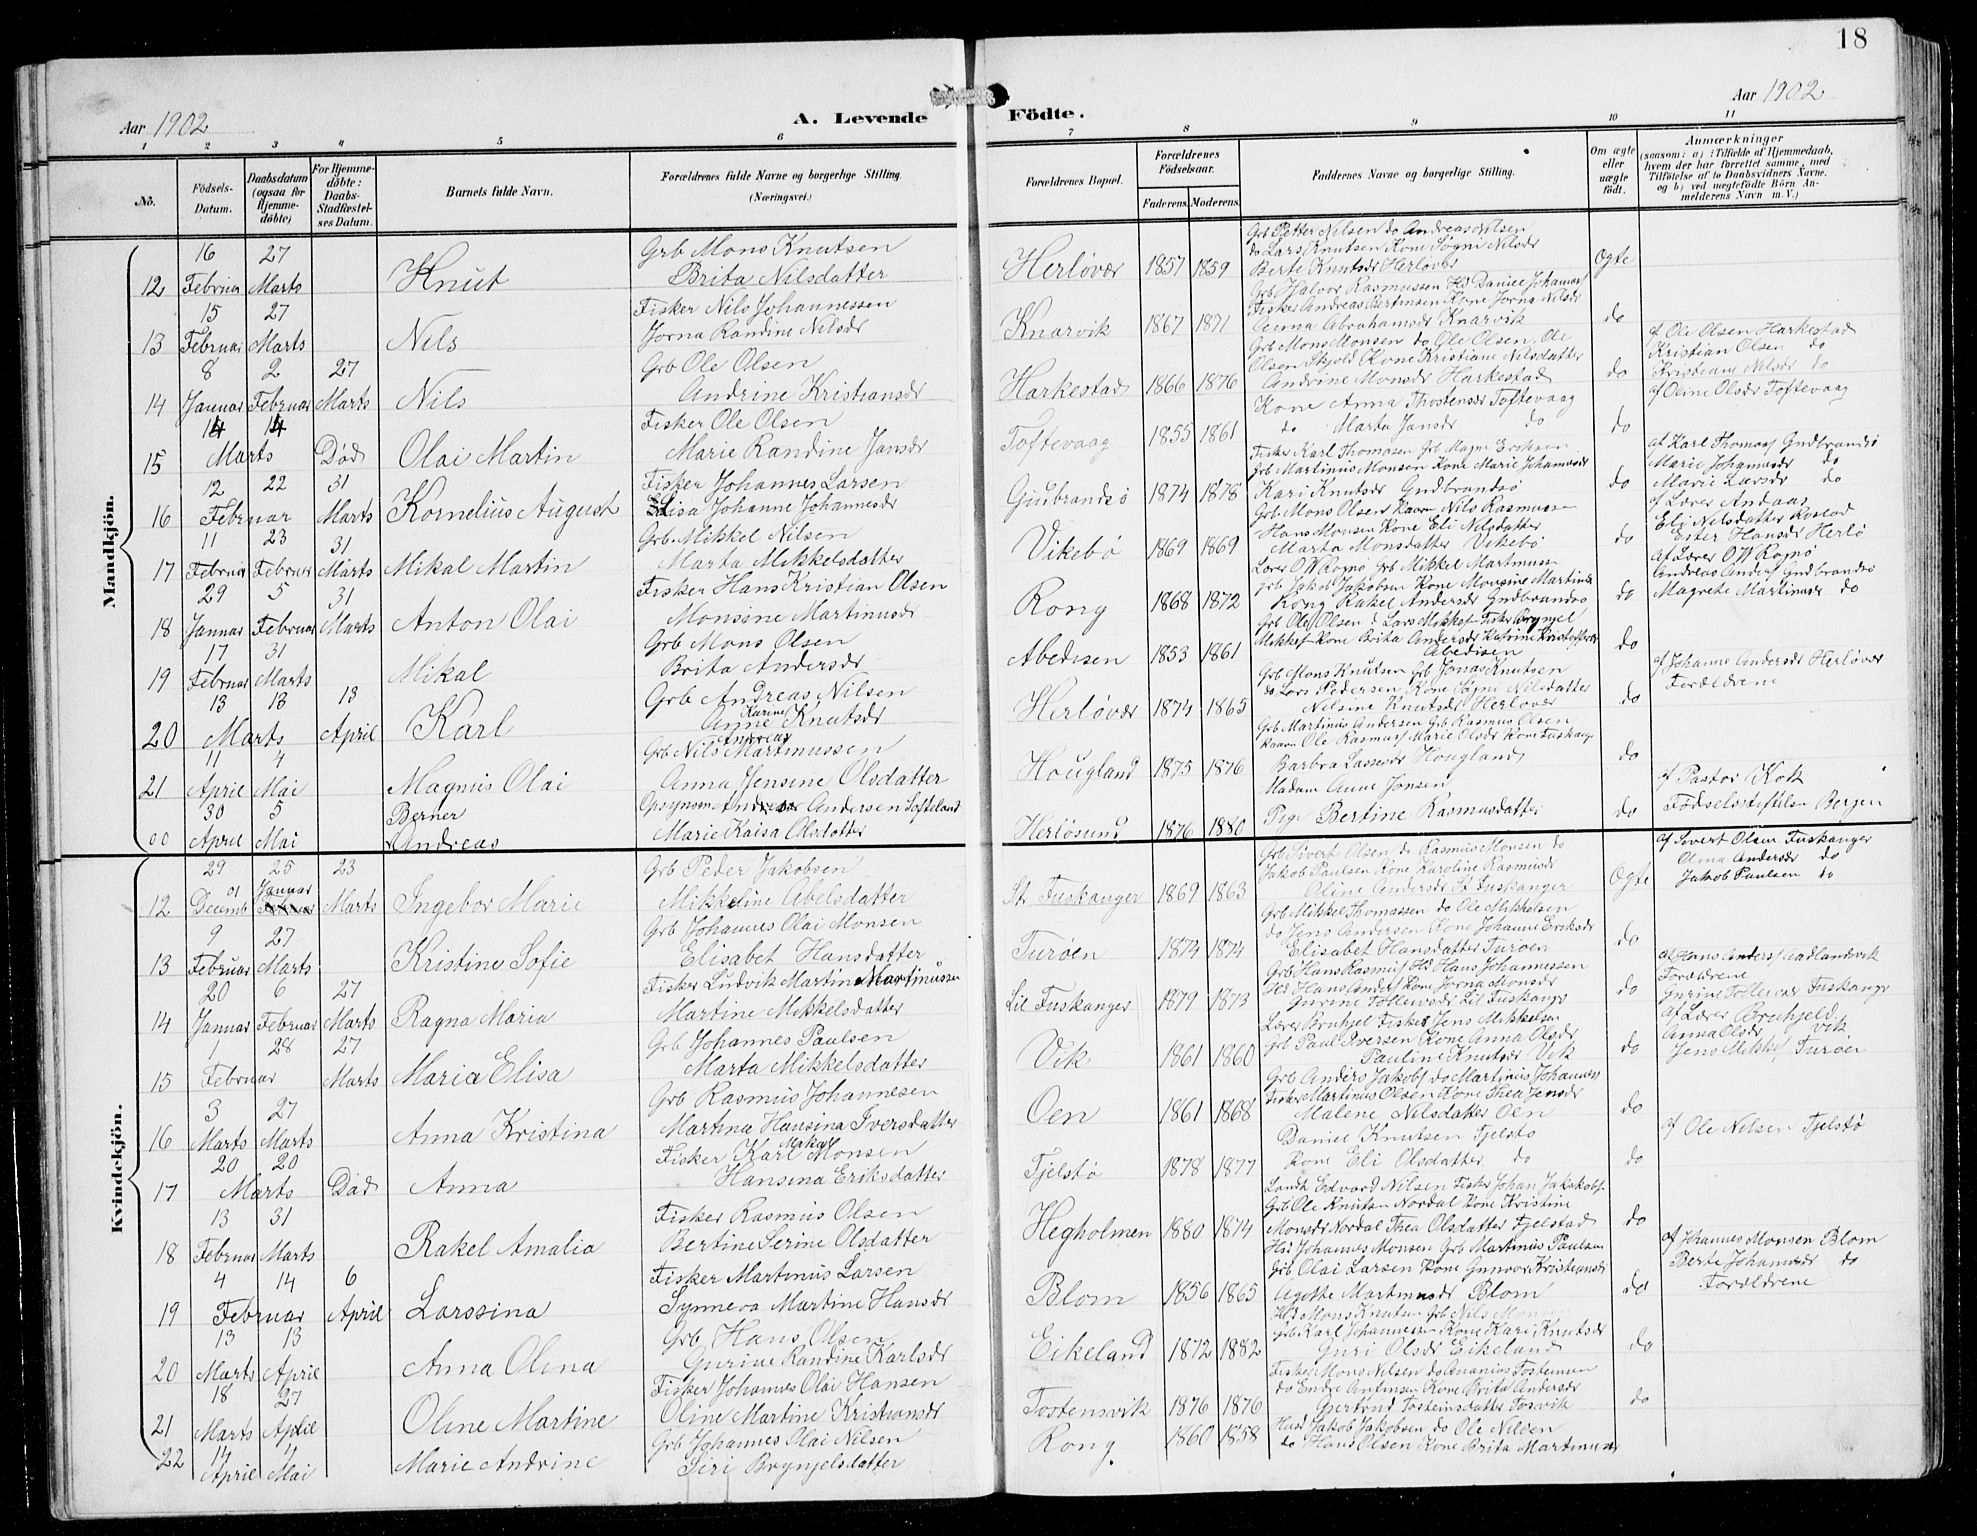 18
Aar 1902
A. Levende
Födte.
Aar 1902
1 2 3 4 5 6 7 8 9 10 11
No.
Födsels-Datum.
Daabsdatum (ogsaa for Hjemmedöbte)
For Hjemmedöbte: Daabs-Stadfæstelses Datum.
Barnets fulde Navn.
Forældrenes fulde Navne og borgerlige Stilling. (Næringsvei.)
Forældrenes Bopæl.
Forældrenes Födselsaar.
Faderens. Moderens.
Faddernes Navne og borgerlige Stilling.
Om ægte eller uægte født.
Anmærkninger
(saasom: a) i Tilfælde af Hjemmedaab, hvem der har forrettet samme, med Tilföielse af to Daabsvidners Navne, og b) ved uægtefödte Börn Anmelderens Navn m. V.)
Mandkjön.
12 16 Februar 27 Marts Knut
Grb Mons Knutsen
Brita Nilsdatter
Herløvær 1857 1859
Grb Petter Nilsen do Andreas Nilsen
do Lars Knutsen Kone Søgni Nilsdr
Berte Knutsdr Herløvær
Ægte
13 15 Februar 27 Marts Nils
Fisker Nils Johannessen
Jorna Randine Nilsdr
Knarvik 1867 1871
Grb Halvor Rasmussen Hd Daniel Johannes
Fisker Andreas Bertinsen Kone Jorna Nilsdr
Anna Abrahamsdr Knarvik
do
14 8 Januar 2 Februar 27 Marts Nils
Grb Ole Olsen
Andrine Kristiansdr
Harkestad 1866 1876
Grb Mons Monsen do Ole Olsen, Ole
Olsen Skjold Kone Kristiane Nilsdatter
Andrine Monsdr Harkestad
do
af Ole Olsen Harkestad
Kristian Olsen do
Kristiane Nilsdr do
15 14 14 Marts Død Olai Martin
Fisker Ole Olsen
Marie Randine Jansdr
Toftevaag 1855 1861
Kone Anna Thostensdr Toftevaag
do Marta Jansdr do
do
af Oline Olsdr Toftevaag
16 12 22 Februar 31 Marts Kornelius August
Fisker Johannes Larsen
Elisa Johanne Johannesdr
Gjúbrandsø 1874 1878
Fisker Karl Thomasen Grb Magne Eriksen
Grb Martinus Monsen Kone Marie Johannesdr
Kari Knutsdr Gudbrandsø
do
af Karl Thomas Gudbrandsø
Marie Johannesdr do
Marie Larsdr do
17 11 Februar 23 Februar 31 Marts Mikal Martin
Grb. Mikkel Nilsen
Marta Mikkelsdatter
Vikebø 1869 1869
Grb Mons Olsen Kaarn Nils Rasmussen
Hans Monsen Kone Eli Nilsdatter
Marta Monsdatter Vikebø
do
af Lærer Andaas
Eli Nilsdatter Rosland
Ester Hansdr Herlø
18 29 Januar 5 Februar 31 Marts Anton Olai
Fisker Hans Kristian Olsen
Monsine Martinusdr
Rong 1868 1872
Lærer O W Rognø Grb Mikkel Martinusen
grb Jakob Jakobsen Kone Monsine Martinsdr
Rong Rakel Andersdr Gudbrandsø
do
af Lærer O W Rognø
Andreas Anders Gudbrandsø
Magrete Martinusdr do
19 17 Februar 31 Marts Mikal
Grb Mons Olsen
Brita Andersdr
Abedisen 1853 1861
Grb Ole Olsen d Lars Mikkels Fisker Brynjel
Mikkels Kone Brita Andersdr Katrine Kristoffersdr
Abedisen
do
20 13 13 Marts 13 April Karl
Grb Andreas Nilsen
Anne Karine Knutsdr
Herløvær 1874 1865
Grb Mons Knudsen Grb Jonas Knutsen
do Lars Pedersen Kone Søgni Nilsdatter
Nilsine Knutsdr Herløvær
do
af Johanne Andersdr Herløvær
Forældrene
21 11 April 4 Mai Magnus Olai
Grb Nils Andreas Martinussen
Anna Jensine Olsdatter
Hougland 1875 1876
Grb Martinus Andersen Grb Rasmus Olsen
Kaarn Ole Rasmus Marie Olsdr Kone Fuskange
Barbra Lassesdr Hougland
do
00 30 April 5 Mai Berner Andreas
Opsynsm Andreas Andersen Softeland
Marie Kaisa Olsdatter
Herløsund 1876 1880
Madam Anne Jensen
Pige Bertine Rasmusdatter
do
af Pastor Kok
Fødselsstiftelsen Bergen
Kvindekjön.
12 29 Decemb 01 25 Januar 23 Marts Ingebor Marie
Grb Peder Jakobsen
Mikkeline Abelsdatter
St. Fuskanger 1869 1863
Grb Sivert Olsen do Rasmus Monsen do
Jakob Paulsen Kone Karoline Rasmusdr
Oline Andersdr St Fuskanger
Ægte
af Sivert Olsen Fuskanger
Olina Andersdr do
Jakob Paulsen do
13 9 Februar 27 Marts Kristine Sofie
Grb Johannes Olai Monsen
Elisabet Hansdatter
Turøen 1874 1874
Grb Mikkel Thomassen do Ole Mikkelsen
do Jens Andersen Kone Johanne Eriksdr
Elisabet Hansdatter Turøen
do
14 20 Januar 6 Februar 27 Marts Ragna Maria
Fisker Ludvik Martin Martinussen
Martine Mikkelsdatter
Lil Fuskanger 1879 1873
Grb Hans Rasmus Hd Hans Johannessen
Hd Hans Anders Kone Jorna Monsdr
Gurine Tollevsdr Lil Fuskange
do
af Hans Anders Aadlandsvik
Forældrene
Gurine Tollevsdr Fuskange
15 1 28 Februar 27 Marts Maria Elisa
Grb Johannes Paulsen
Marta Mikkelsdatter
Vik 1861 1860
Lærer Bruhjel Fisker Jens Mikkelsen
Grb Paul Iversen Kone Anna Olsdr
Pauline Knutsdr Vik
do
af Lærer Bruhjeld
Anna Olsdr Vik
Jens Mikkels Turøen
16 3 Marts 27 Marts Anna Kristina
Grb Rasmus Johannesen
Martina Hansina Iversdatter
Oen 1861 1868
Grb Anders Jakobs do Martinus Johannes
Fisker Martinus Olsen Kone Thea Jensdr
Malene Nilsdatter Oen
do
17 20 20 Marts Død Anna
Fisker Karl Makal Monsen
Hansina Eriksdatter
Fjelstø 1878 1877
Daniel Knutsen Fjelstø
Kone Eli Olsdatter do
do
af Ole Nilsen Fjelstø
18 13 Februar 31 Marts Rakel Amalia
Fisker Rasmus Olsen
Bertine Serine Olsdatter
Hegholmen 1880 1874
Landh Edvard Nilsen Fisker Johan Jakobs
Grb Ole Knutsen Nordal Kone Kristine
Monsdr Nordal Thea Olsdatter Fjelstad
do
19 4 14 Februar 6 April Larssina
Fisker Martinus Larsen
Synneva Martine Hansdr
Blom 1856 1865
Hd Johannes Monsen Grb Martinus Paulsen
Grb Olai Larsen Kone Gunvor Kristiansdr
Agotte Martinusdr Blom
do
af Johannes Monsen Blom
Berte Johannesdr do
Forældrene
20 13 Marts 13 April Anna Olina
Grb Hans Olsen
Gurine Randine Karlsdr
Eikeland 1872 1882
Hd Mons Knutsen Grb Nils Monsen
Grb Karl Johannesen Kone Kari Knutsdr
Guri Olsdr Eikeland
do
21 18 Marts 27 April Oline Martine
Fisker Johannes Olai Hansen
Oline Martine Kristiansdr
Tostensvik 1876 1876
Fisker Mons Nilsen do Ananias Tostensen
do Endre Antonsen Kone Brita Andersdr
Gjertrud Tosteinsdatter Tosvik
do
22 14 April 4 Mai Marie Andrine
Grb Johannes Olai Nilsen
Siri Brynjelsdatter
Rong 1860 1858
Husd Jakob Jakobsen do Ole Nilsen
do Hans Olsen Kone Brita Martinusdr